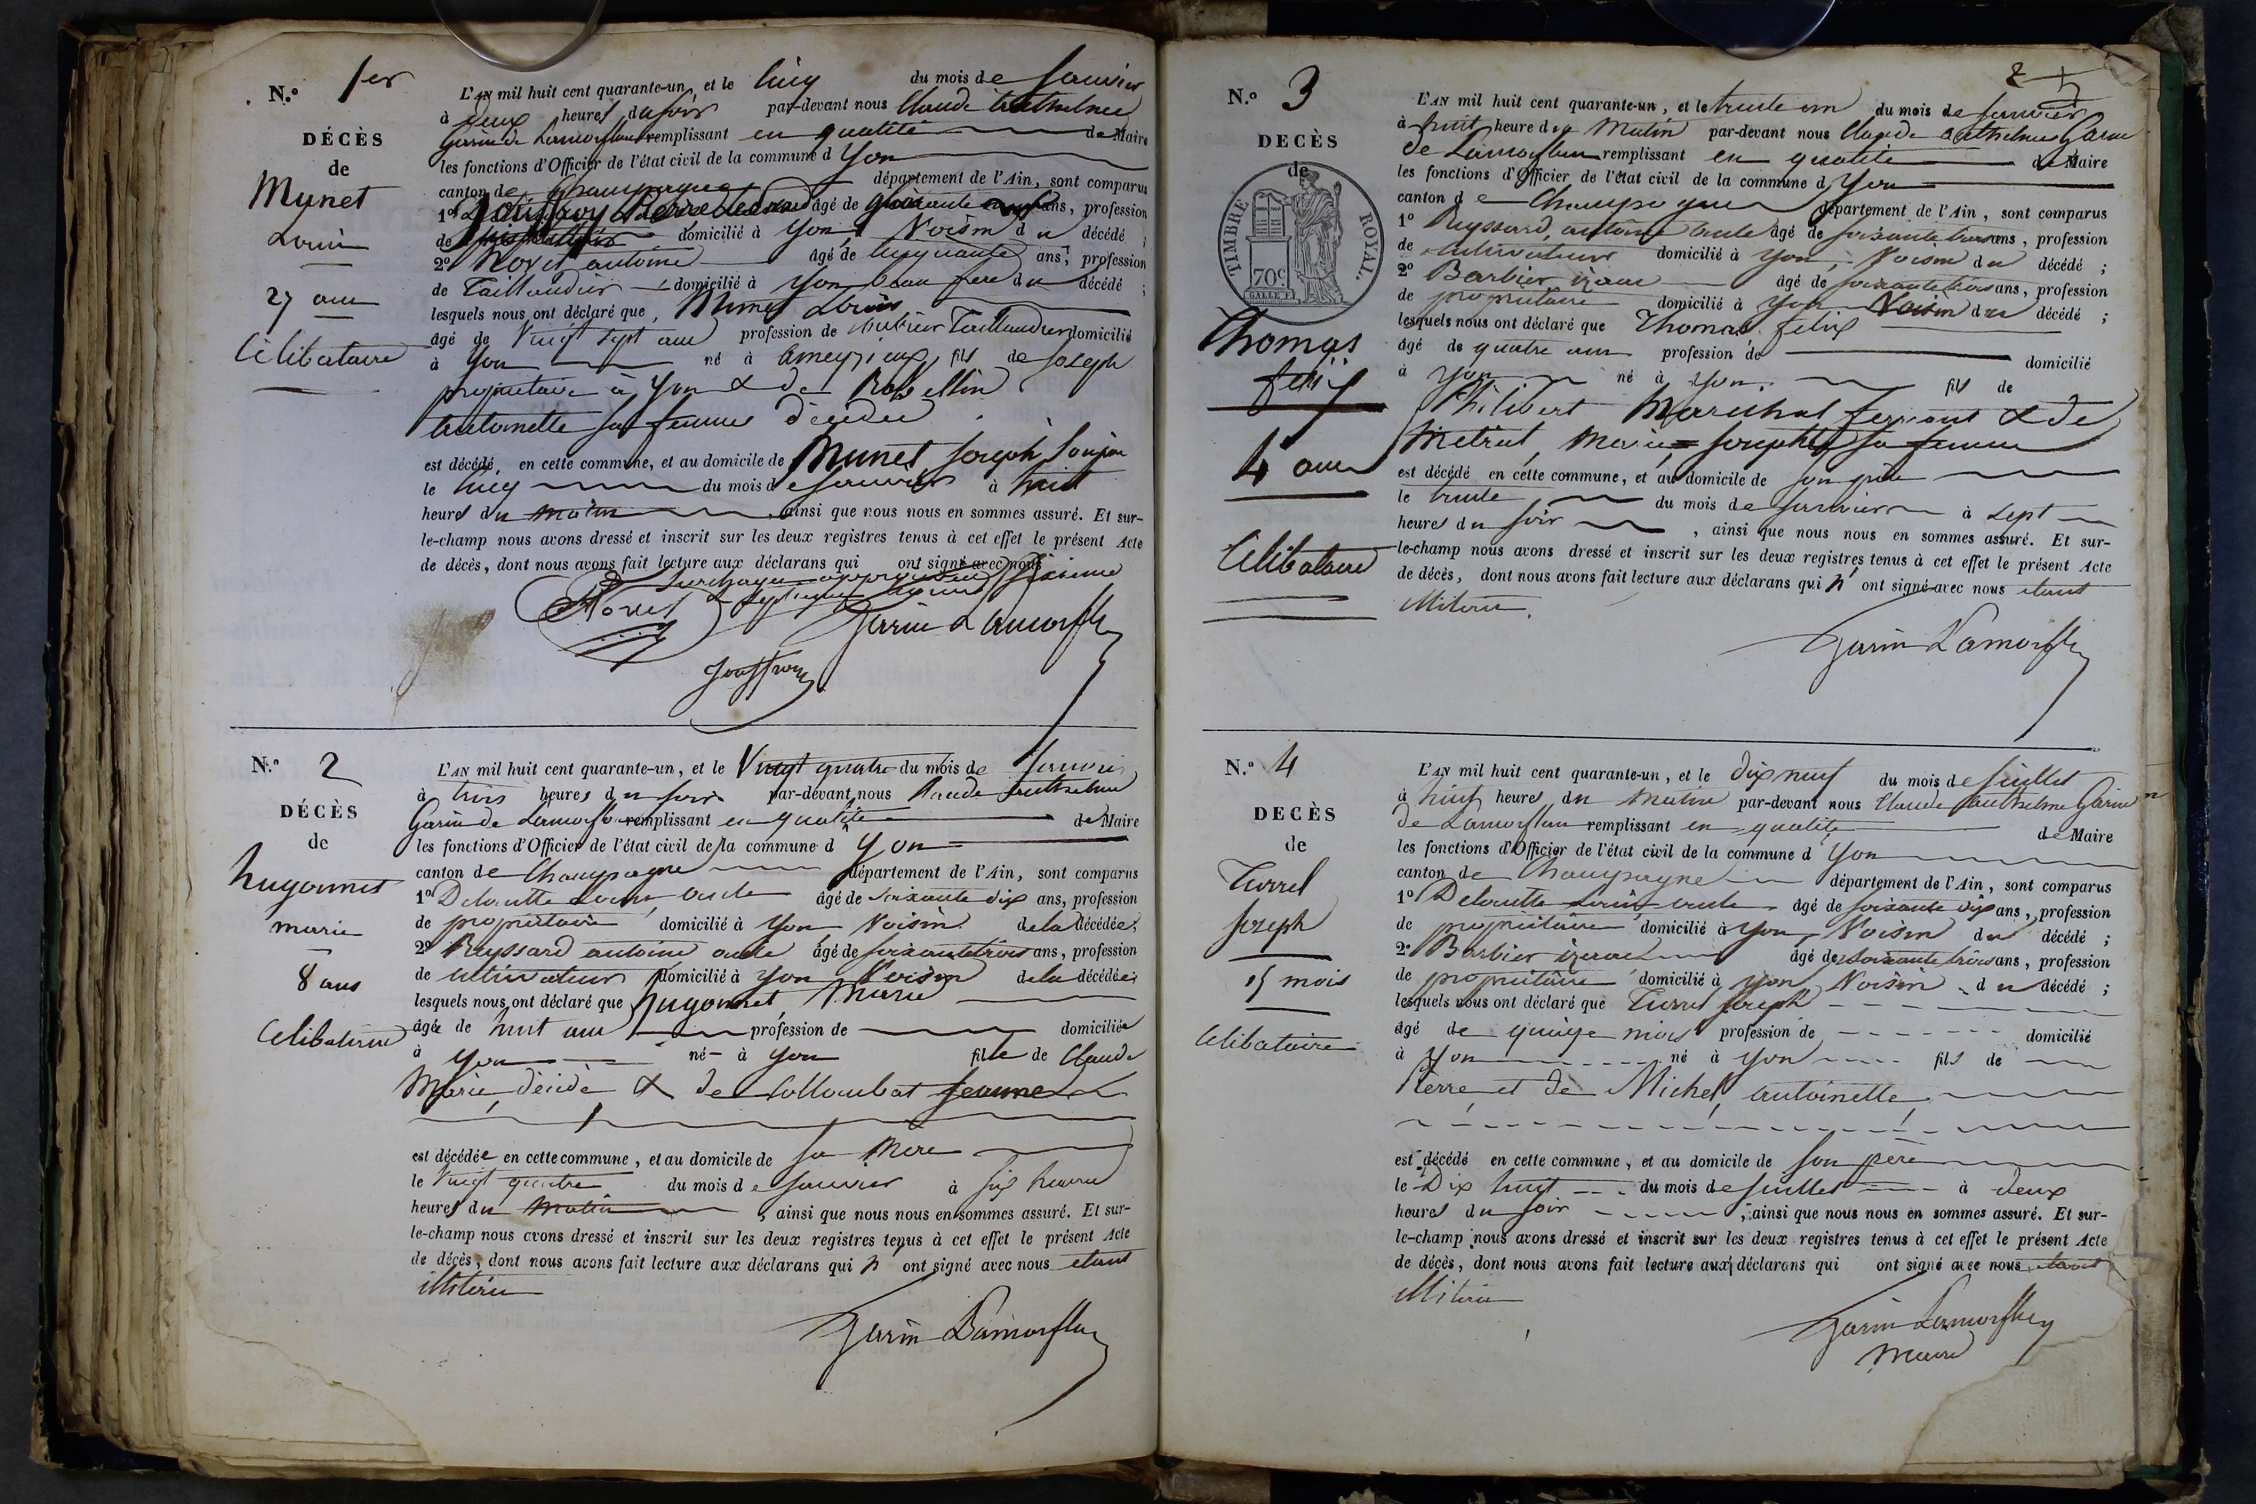 N.° 1er
DÉCÈS
de
Munet
Louis
27 ans
Célibataire
L'AN mil huit cent quarante-un, et le cinq du mois de Janvier
à deux heures du soir par-devant nous Claude anthelme
Garin de Lamorflan remplissant en qualité de Maire
les fonctions d'Officier de l'état civil de la commune d Yon
canton de Champagne département de l'Ain, sont comparus
1° Jouffroy Pierre âgé de quarante ans, profession
de domicilié à Yon, Voisin du décédé ;
2° Royet antoine âgé de cinquante ans, profession
de Taillandier domicilié à Yon beau frere du décédé ;
lesquels nous ont déclaré que, Munet Louis
âgé de Vingt sept ans profession de ouvrier Taillandier domicilié
à Yon né à ameyzieux, fils de Joseph
propriétaire à Yon & de Rabellin
antoinette sa femme décédée
est décédé en cette commune, et au domicile de Munet Joseph son père
le cinq du mois de Janvier à huit
heures du matin, ainsi que nous nous en sommes assuré. Et sur-
le-champ nous avons dressé et inscrit sur les deux registres tenus à cet effet le présent Acte
de décès, dont nous avons fait lecture aux déclarans qui ont signé avec nous
surcharge approuvée
Royet
Garin Lamorflan
Jouffroy
N.° 2
DÉCÈS
de
hugonnet
marie
8 ans
Célibataire
L'AN mil huit cent quarante-un, et le Vingt quatre du mois de Janvier
à trois heures du soir par-devant nous Claude anthelme
Garin de Lamorflan remplissant en qualité de Maire
les fonctions d'Officier de l'état civil de la commune d Yon
canton de Champagne département de l'Ain, sont comparus
1° Delouette Louis oncle âgé de soixante dix ans, profession
de propriétaire domicilié à Yon Voisin de la décédée ;
2° Buyssard antoine oncle âgé de soixante trois ans, profession
de cultivateur domicilié à Yon Voisin de la décédée ;
lesquels nous ont déclaré que hugonnet Marie
âgée de huit ans profession de domiciliée
à Yon né à Yon fille de Claude
Marie, décédé & de Collombat Jeanne
est décédée en cette commune, et au domicile de sa Mere
le Vingt quatre du mois de Janvier à six heures
heures du matin, ainsi que nous nous en sommes assuré. Et sur-
le-champ nous avons dressé et inscrit sur les deux registres tenus à cet effet le présent Acte
de décès, dont nous avons fait lecture aux déclarans qui n' ont signé avec nous étant
illiterés
Garin Lamorflan
2
N.° 3
DECÈS
de
TIMBRE ROYAL.
70c
Thomas
felix
4 ans
Célibataire
L'AN mil huit cent quarante-un, et le trente un du mois de Janvier
à huit heure du Matin par-devant nous Claude anthelme Garin
de Lamorflan remplissant en qualité de Maire
les fonctions d'Officier de l'état civil de la commune d Yon
canton de Champagne département de l'Ain, sont comparus
1° Buyssard, antoine oncle âgé de soixante trois ans, profession
de cultivateur domicilié à Yon, Voisin du décédé ;
2° Barbier âgé de soixante trois ans, profession
de propriétaire domicilié à Yon Voisin du décédé ;
lesquels nous ont déclaré que Thomas, felix
âgé de quatre ans profession de domicilié
à Yon né à Yon fils de
Philibert Marechal ferrant & de
Metral, Marie Josephte sa femme
est décédé en cette commune, et au domicile de son père
le trente du mois de Janvier à sept
heures du soir, ainsi que nous nous en sommes assuré. Et sur-
le-champ nous avons dressé et inscrit sur les deux registres tenus à cet effet le présent Acte
de décès, dont nous avons fait lecture aux déclarans qui n' ont signé avec nous étant
illiterés
Garin Lamorflan
N.° 4
DECÈS
de
Turrel
Joseph
15 mois
Celibataire
L'AN mil huit cent quarante-un, et le dix neuf du mois de Juillet
à huit heures du Matin par-devant nous Claude anthelme Garin
de Lamorflan remplissant en qualité de Maire
les fonctions d'Officier de l'état civil de la commune d Yon
canton de Champagne département de l'Ain, sont comparus
1° Delouette Louis oncle âgé de soixante dix ans, profession
de propriétaire domicilié à Yon, Voisin du décédé ;
2° Barbier âgé de soixante trois ans, profession
de propriétaire domicilié à Yon Voisin du décédé ;
lesquels nous ont déclaré que Turrel Joseph
âgé de quinze mois profession de domicilié
à Yon né à Yon fils de
Pierre et de Michel, antoinette
est décédé en cette commune, et au domicile de son père
le Dix huit du mois de Juillet à deux
heures du soir, ainsi que nous nous en sommes assuré. Et sur-
le-champ nous avons dressé et inscrit sur les deux registres tenus à cet effet le présent Acte
de décès, dont nous avons fait lecture aux déclarans qui ont signé avec nous étant
illiterés
Garin Lamorflan
Maire